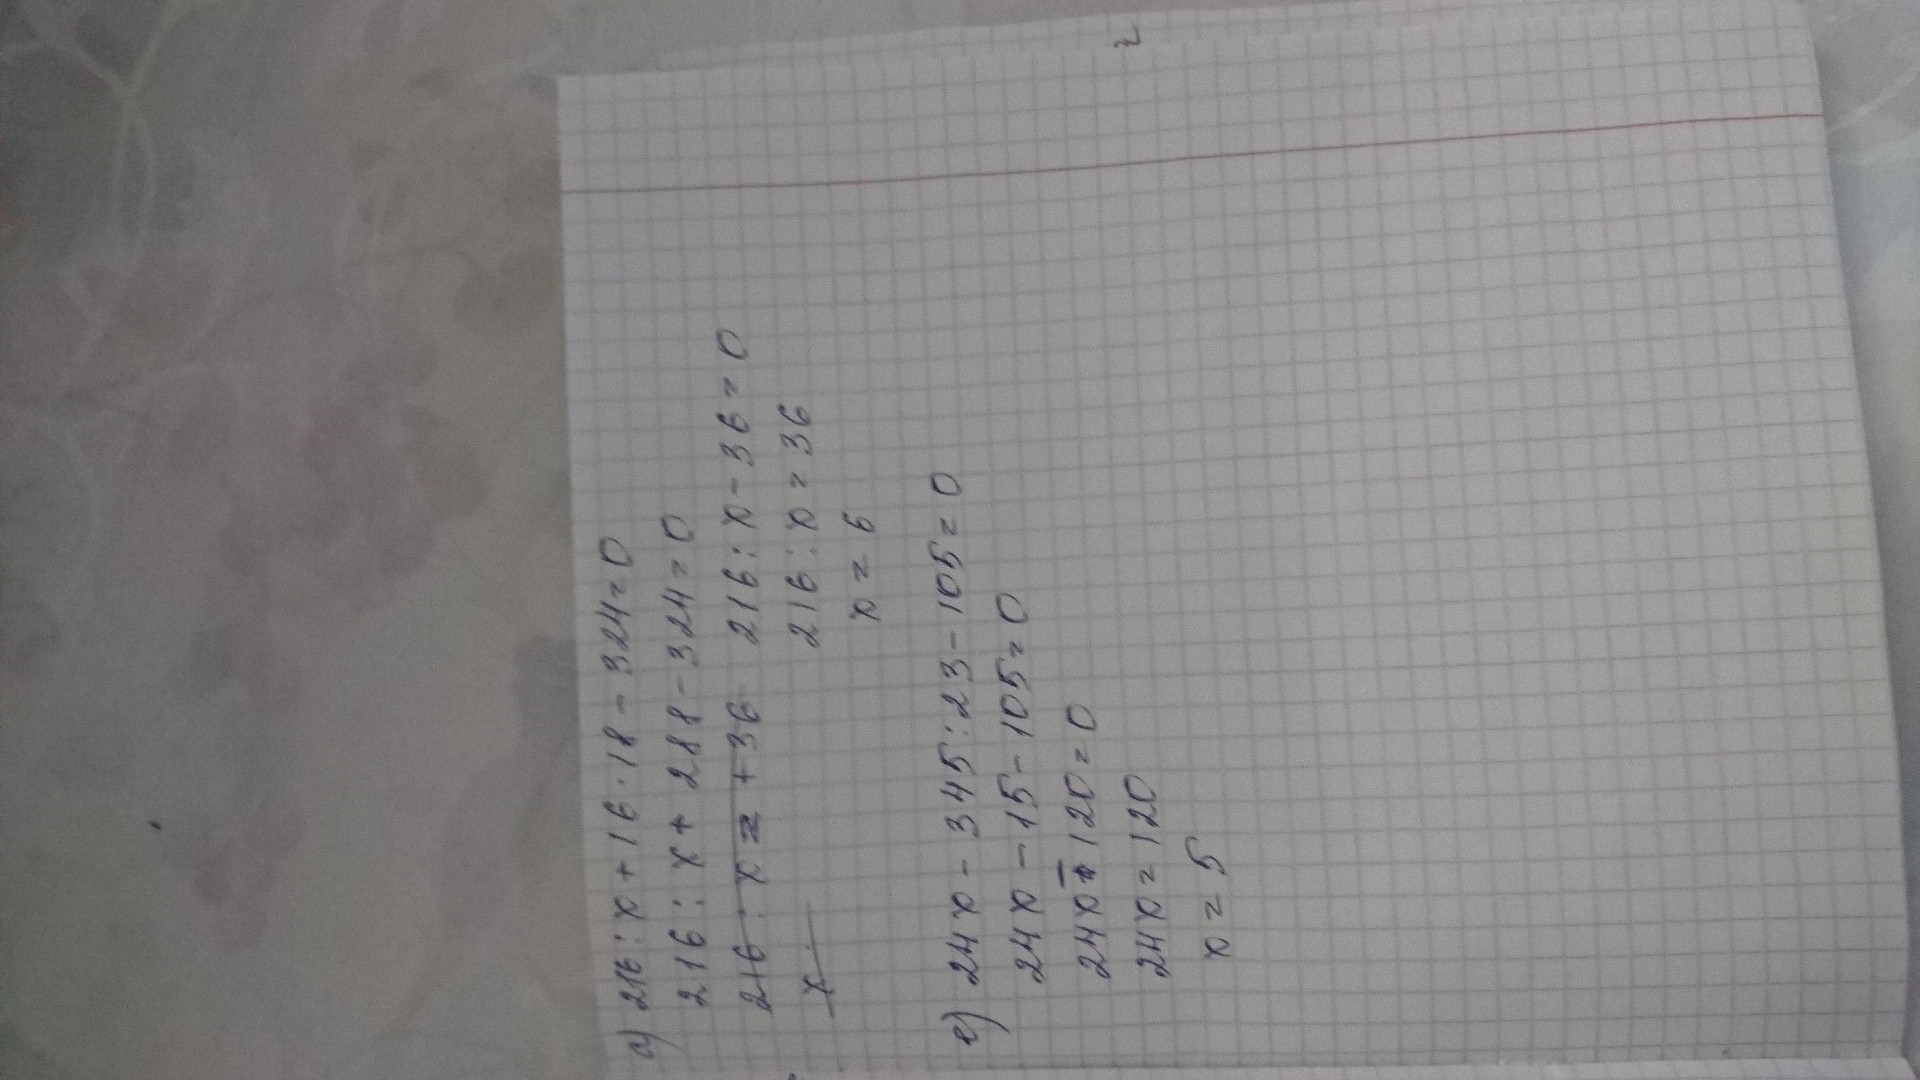 а) 216 : x + 16 · 18 - 324 = 0
216 : x + 288 - 324 = 0
216 : x = + 36 216 : x - 36 = 0
x 216 : x = 36
x = 6
е) 24x - 345 : 23 - 105 = 0
24x - 15 - 105 = 0
24x - 120 = 0
24x = 120
x = 5